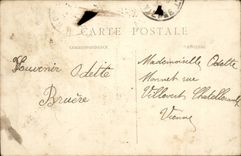 CARTE POSTALE
CORRESPONDANCE
Souvenir Odette
Bruère
Mademoiselle Odette
Monnet rue
Villevert Chatellerault
Vienne